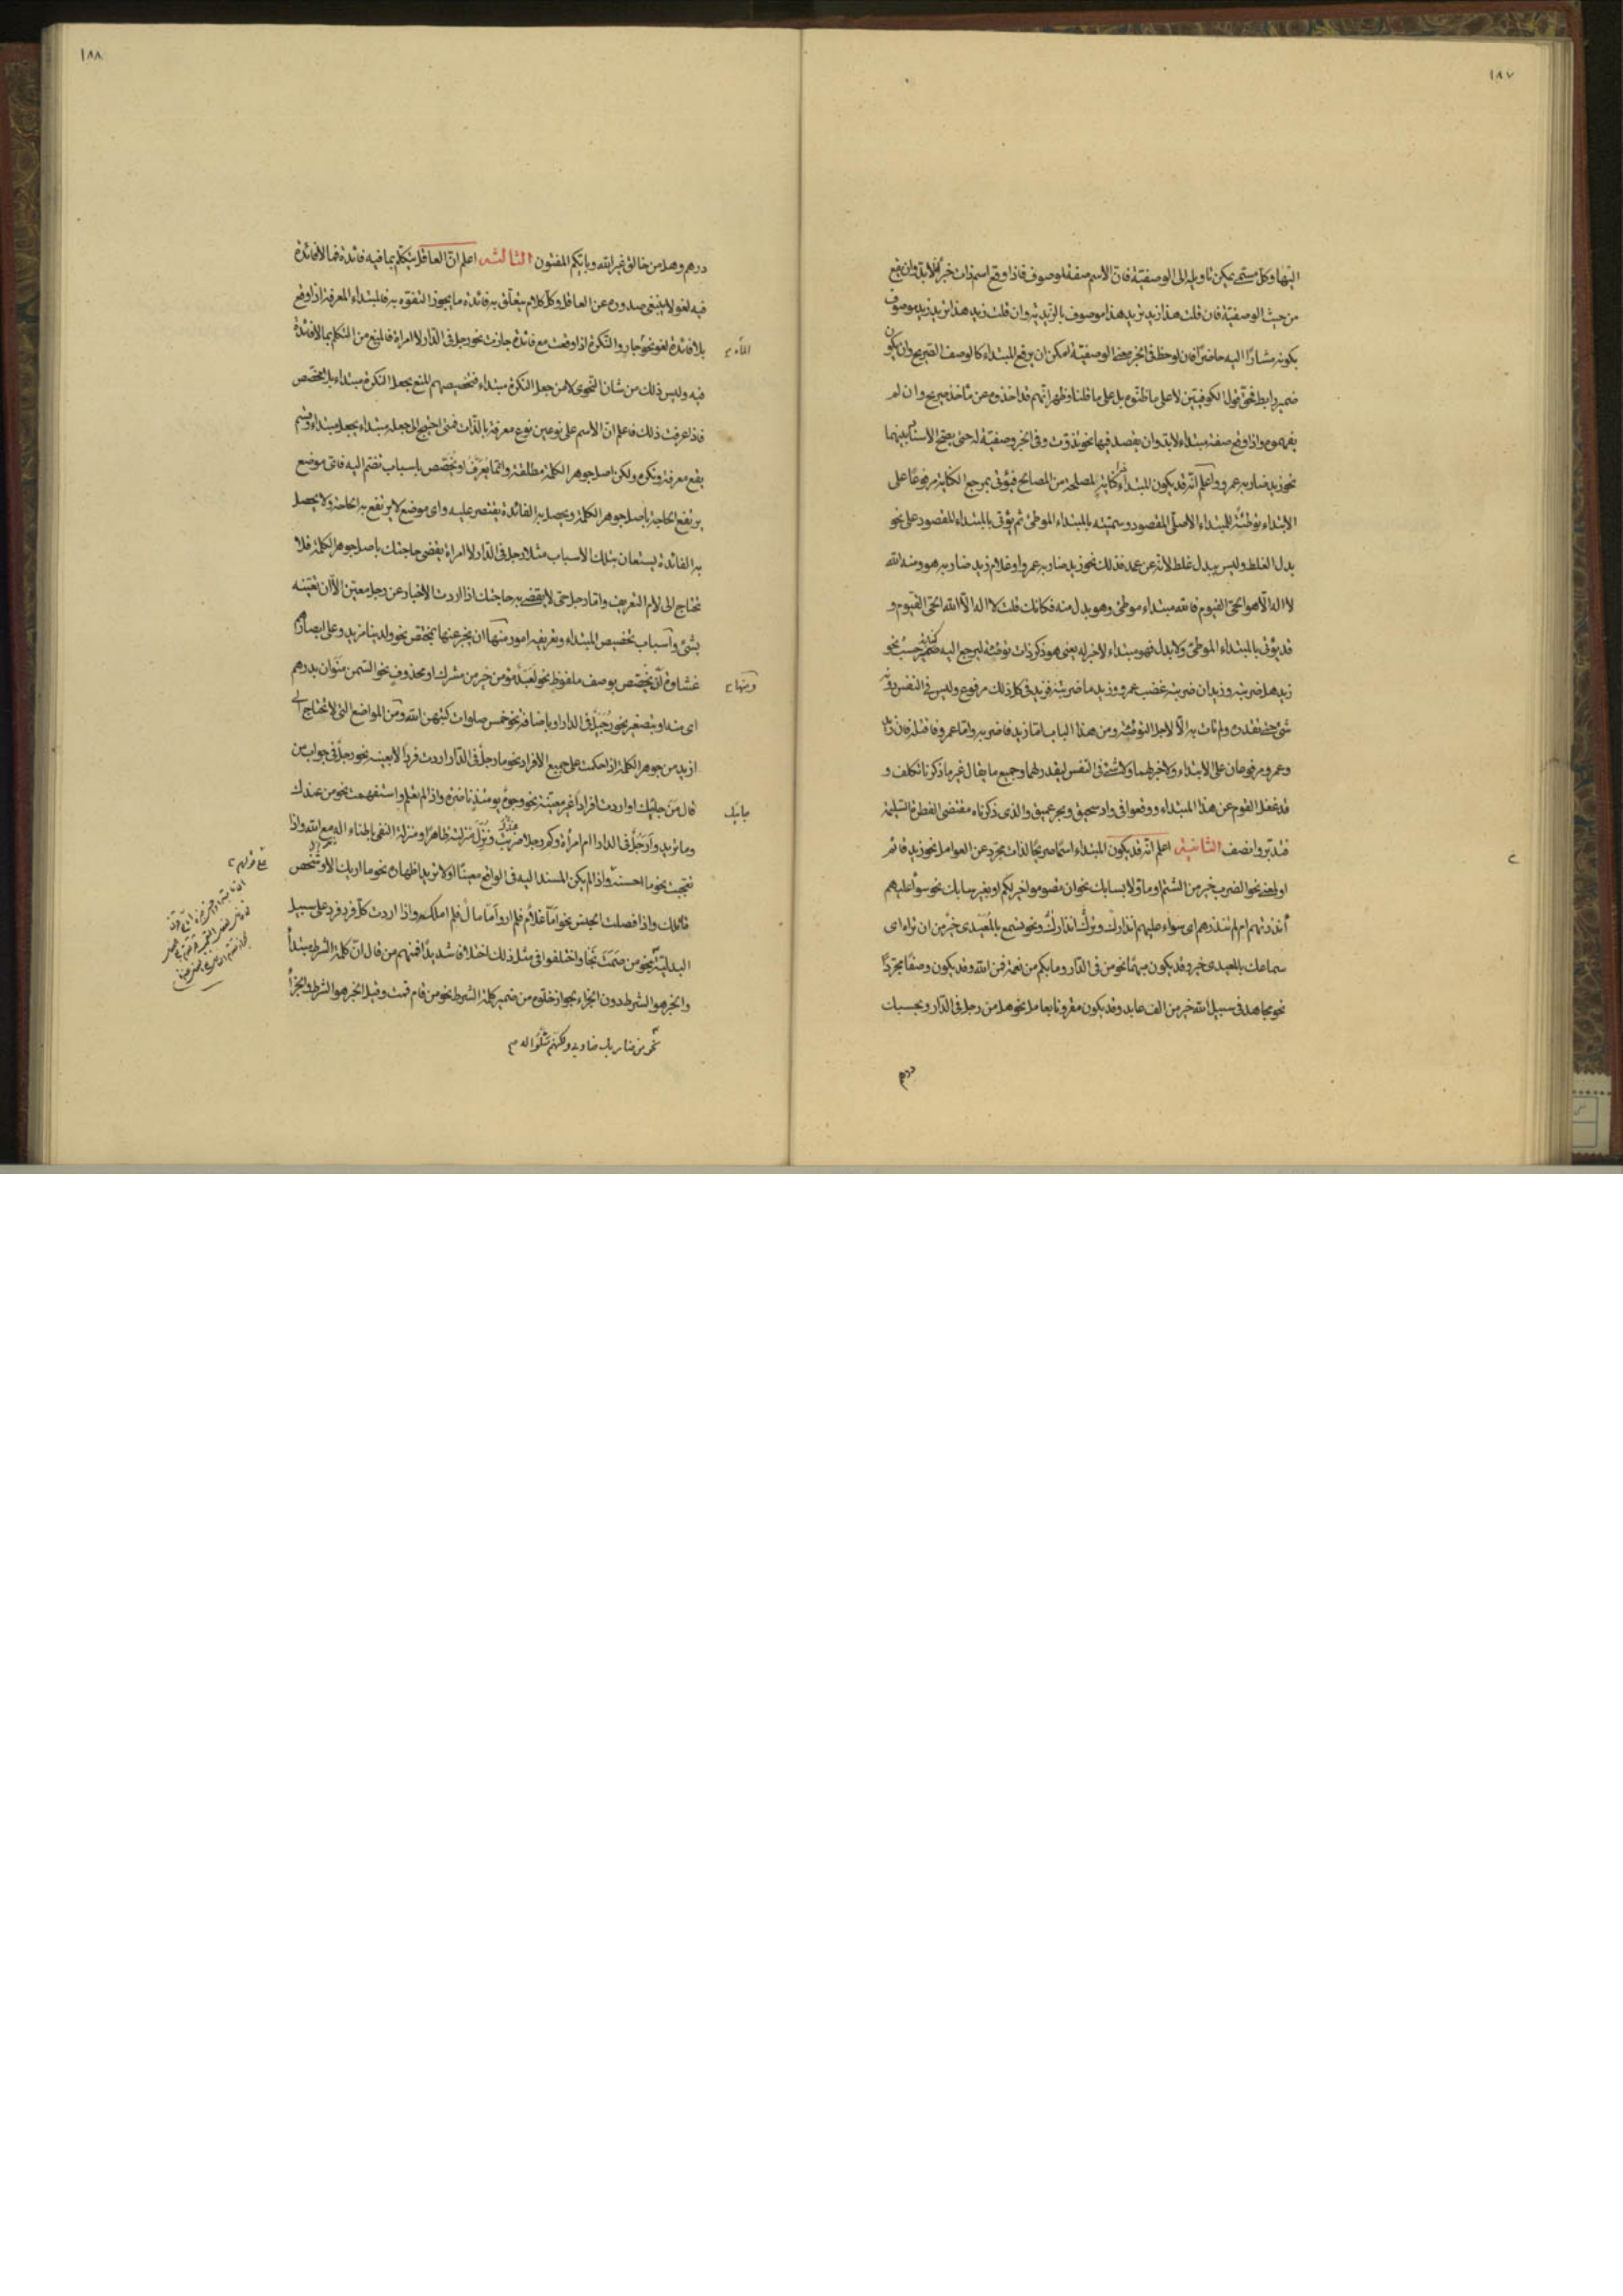 ١٨٧
اليها وكل مستمى يمكن تاويله الى الوصفية فان الاسم صفة لموصوف فاذا وقع اسم ذات خبرا فلا بد وان يقع
من حيث الوصفية فان قلت هذا زيد يريد هذا موصوف بالزيدية وان قلت زيد هذا تريد زيد موصوف
بكونه مشارًا اليه حاضرًا فان لوحظ فى الخبر محض الوصفية امكن ان يرفع المبتداء كالوصف الصريح وان يكون
ضمير رابط فحق قول الكوفيين لا على ما ظنوه بل على ما قلنا وظهر انهم قد اخذوه عن مأخذ صريح وان لم
يفهموه واذا وقع صفة مبتداء لابد وان يقصد فيها نحو تذوّت وفى الخبر وصفية له حتى يصح الاسناد بينهما
نحو زيد ضاربه عمرو واعلم انه قد يكون المبتداء كناية لمصلحة من المصالح فيؤتى بمرجع الكناية مرفوعًا على
الابتداء توطئة للمبتداء الاصلى المقصود وسميته بالمبتداء الموطئ ثم يؤتى بالمبتداء المقصود على نحو
بدل الغلط وليس ببدل غلط لانه عن عمد فذلك نحو زيد ضاربه عمرو او غلام زيد ضاربه هو ومنه الله
لا اله الا هو الحى القيوم فالله مبتداء موطئ وهو بدل منه فكانك قلت لا اله الا الله الحى القيوم و
قد يؤتى بالمبتداء الموطئ ولا بدل فهو مبتداء لا خبر له يعنى هو ذكر ذات توطئة ليرجع اليه ضمير حسب نحو
زيد هل ضربته وزيد ان ضربته غضب عمرو وزيد ما ضربته فزيد فى كل ذلك مرفوع وليس فى النفس
شئ حتى تقدره ولم تات به الا لاجل التوطئة ومن هذا الباب اما زيد فاضربه واما عمرو فاقتله فان زيدا
وعمرو مرفوعان على الابتداء ولا خبر لهما ولا شئ فى النفس ليقدر لهما وجميع ما يقال غير ما ذكرنا تكلف و
قد غفل القوم عن هذا المبتداء ووقعوا فى واد سحيق وبحر عميق والذى ذكرناه مقتضى الفطرة السليمة
فتدبر وانصف الثانية اعلم انه قد يكون المبتداء اسمًا صريحًا لذات مجرد عن العوامل نحو زيد قائم
او لمعنى نحو الضرب خير من الشتم او مأوّلا بسابك نحو ان تصوموا خير لكم او بغير سابك نحو سواء عليهم
ءأنذرتهم ام لم تنذرهم اى سواء عليهم انذارك وترك انذارك ونحو تسمع بالمعيدى خير من ان تراه اى
سماعك بالمعيدى خير وقد يكون مبهمًا نحو من فى الدار وما بكم من نعمة فمن الله وقد يكون وصفًا مجردًا
نحو مجاهد فى سبيل الله خير من الف عابد وقد يكون مقرونا بعامل نحو هل من رجل فى الدار وبحسبك
درهم
١٨٨
درهم وهل من خالق غير الله وبايكم المفتون الثالثة اعلم ان العاقل يتكلم بما فيه فائدة فما لا فائدة
فيه لغو لا ينبغى صدوره عن العاقل وكل كلام يتعلق به فائدة ما يجوز التفوه به فالمبتداء المعرفة اذا وقع
بلا فائدة لغو نحو والنكرة اذا وقعت مع فائدة جازت نحو رجل فى الدار لا امراة فالمنع من التكلم بما لا فائدة
فيه وليس ذلك من شان النحوى لا من جعل النكرة مبتداء فتخصيصهم المنع بجعل النكرة مبتداء بلا مخصص
فاذا عرفت ذلك فاعلم ان الاسم على نوعين نوع معرفة بالذات فمتى احتيج الى جعله مبتداء يجعل مبتداء وقسم
يقع معرفة ونكرة ولكن اصل جوهر الكلمة مطلقة وانما يُعرّف او يخصّص باسباب تضم اليه فاى موضع
يرتفع الحاجة باصل جوهر الكلمة ويحصل به الفائدة يقتصر عليه واى موضع لا يرتفع به الحاجة ولا يحصل
به الفائدة يستعان بتلك الاسباب مثلا رجل فى الدار لا امراة يقضى حاجتك باصل جوهر الكلمة فلا
تحتاج الى لام التعريف واما رجل حتى لا يقضى به حاجتك اذا اردت الاخبار عن رجل معين الا ان تعينه
بشئ واسباب تخصيص المبتداء وتعريفه امور منها ان يخبر عنها بمختص نحو ولدينا مزيد وعلى ابصارهم
غشاوة ان يخصّص بوصف ملفوظ نحو لعبد مؤمن خير من مشرك او محذوف نحو السمن منوان بدرهم
اى منه او بتصغير نحو رُجَيل فى الدار او باضافة نحو خمس صلوات كتبهن الله ومن المواضع التى لا تحتاج الى
ازيد من جوهر الكلمة اذا حكمت على جميع الافراد نحو ما رجل فى الدار او اردت فردًا لا بعينه نحو رجل فى جواب من
قال من جاءك او اردت افرادًا غير معينة نحو وجوه يومئذ ناضرة واذا لم تعلم واستفهمت نحو من عندك
وما تريد وأرجل فى الدار ام امرأة وكم رجلا ضربت ونزّل منزلته ظاهرًا ومنزلة النفى باطناء اله مع الله واذا
تعجبت نحو ما احسنه واذا لم يكن المسند اليه فى الواقع معينًا او لا تريد اظهاره نحو ما اريك الا وشخص
قاتلك واذا فصلت الجنس نحو امّا غلام فلم ار واما مال فلم املك واذا اردت كل فرد فرد على سبيل
البدلية نحو من صَمَتَ نَجَا واختلفوا فى مثل ذلك اختلافا شديدًا فمنهم من قال ان كلمة الشرط مبتدأ
والخبر هو الشرط دون الجزاء بجواز خلوه من ضمير كلمة الشرط نحو من قام قمت وقيل الخبر هو الشرط والجزأ